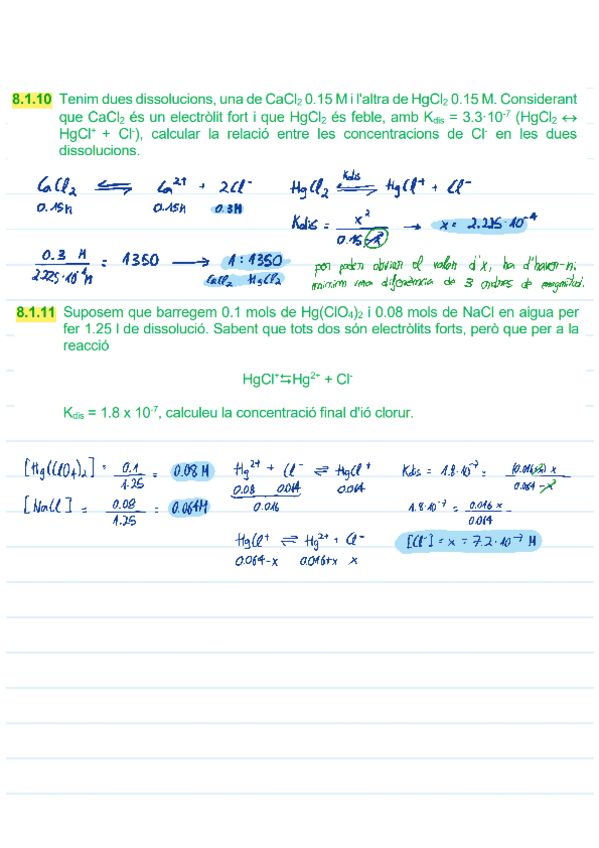 8.1.10 Tenim dues dissolucions, una de CaCl₂ 0.15 M i l'altra de HgCl₂ 0.15 M. Considerant
que CaCl₂ és un electròlit fort i que HgCl₂ és feble, amb Kdis = 3.3·10⁻⁷ (HgCl₂ ↔
HgCl⁺ + Cl⁻), calcular la relació entre les concentracions de Cl⁻ en les dues
dissolucions.
CaCl₂ ⇌ Ca²⁺ + 2Cl⁻ HgCl₂ ⇌ Kdis HgCl⁺ + Cl⁻
0.15M 0.15M 0.3M
Kdis = x² / 0.15-x → x = 2.225·10⁻⁴
0.3 M / 2.225·10⁻⁴M = 1350 → 1 : 1350
CaCl₂ HgCl₂
per poder obviar el valor d'x, ha d'haver-hi
mínim una diferència de 3 ordres de magnitud.
8.1.11 Suposem que barregem 0.1 mols de Hg(ClO₄)₂ i 0.08 mols de NaCl en aigua per
fer 1.25 l de dissolució. Sabent que tots dos són electròlits forts, però que per a la
reacció
HgCl⁺⇆Hg²⁺ + Cl⁻
Kdis = 1.8 x 10⁻⁷, calculeu la concentració final d'ió clorur.
[Hg(ClO₄)₂] = 0.1 / 1.25 = 0.08 M Hg²⁺ + Cl⁻ ⇌ HgCl⁺ Kdis = 1.8·10⁻⁷ = (0.016+x) x / 0.064-x
0.08 0.064 0.064
[NaCl] = 0.08 / 1.25 = 0.064M 0.016 1.8·10⁻⁷ = 0.016 x / 0.064
HgCl⁺ ⇌ Hg²⁺ + Cl⁻ [Cl⁻] = x = 7.2·10⁻⁷ M
0.064-x 0.016+x x